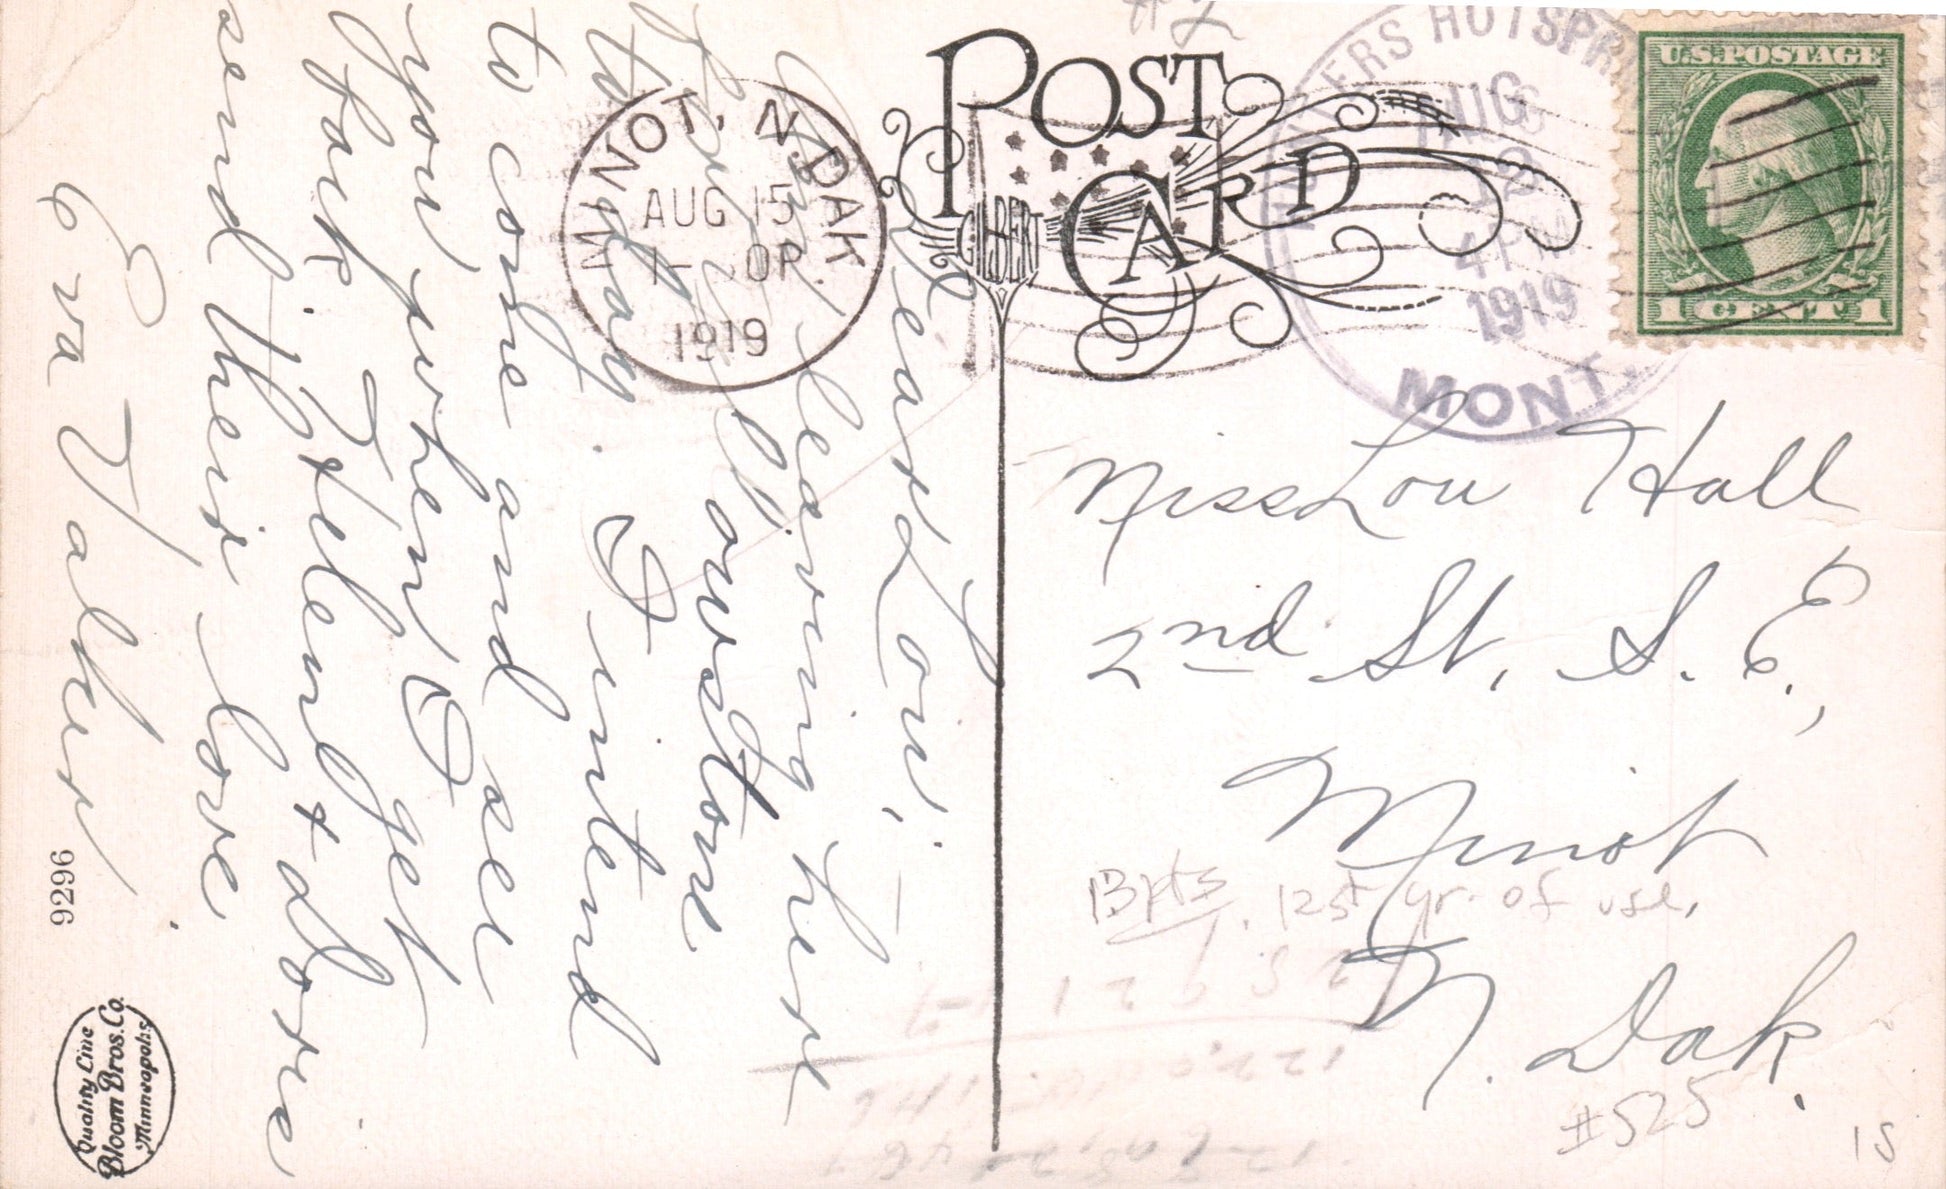 POST CARD
MINOT, N. DAK
AUG 15
1919
HUNTERS HOTSPRINGS
AUG
12
4 PM
1919
MONT.
U.S. POSTAGE
1 CENT 1
Dear Lou,
leaving here
for Yellowstone
today. I intend
to come and see
you when I get
back. Helen & dosie
send their love.
Eva Valker
Miss Lou Hall
2nd St, S. E.,
Minot
N. Dak.
Bkts. 12st yr. of use.
#525
15
9296
Quality Line
Bloom Bros. Co.
Minneapolis